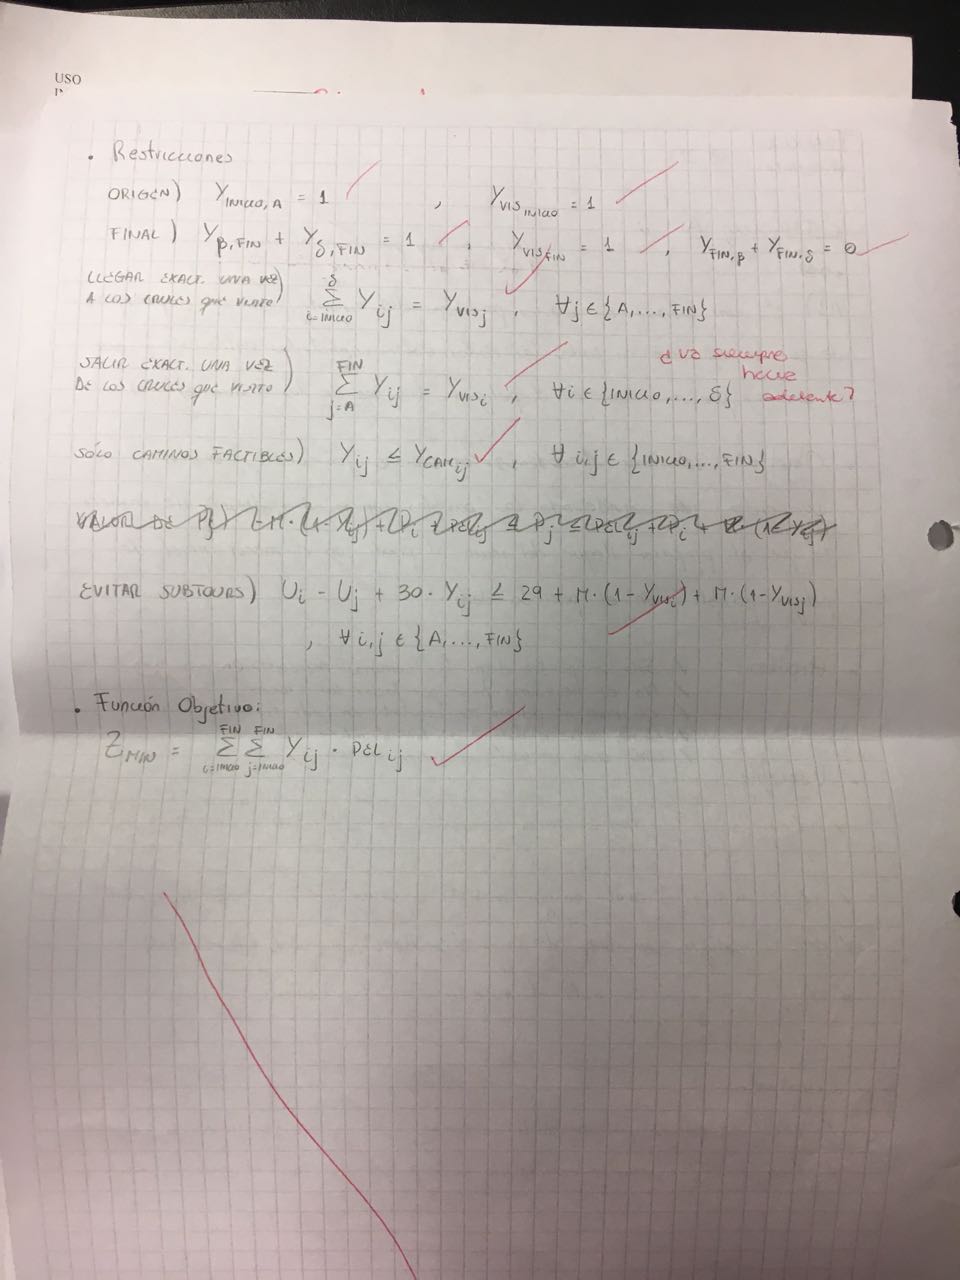 USO
• Restricciones
ORIGEN) Y_{INICIO,A} = 1 , Y_{VIS_{INICIO}} = 1
FINAL) Y_{β,FIN} + Y_{δ,FIN} = 1 , Y_{VIS_{FIN}} = 1 , Y_{FIN,β} + Y_{FIN,δ} = 0
LLEGAR EXACT. UNA VEZ
A LOS CRUCES QUE VISITE) \sum_{i=INICIO}^{δ} Y_{ij} = Y_{VIS_j} , ∀j ∈ {A,...,FIN}
¿va siempre
hacia
adelante?
SALIR EXACT. UNA VEZ
DE LOS CRUCES QUE VISITO) \sum_{j=A}^{FIN} Y_{ij} = Y_{VIS_i} , ∀i ∈ {INICIO,...,δ}
SÓLO CAMINOS FACTIBLES) Y_{ij} ≤ Y_{CAM_{ij}} , ∀ i,j ∈ {INICIO,...,FIN}
VALOR DE
EVITAR SUBTOURS) U_i - U_j + 30 · Y_{ij} ≤ 29 + M·(1-Y_{VIS_i}) + M·(1-Y_{VIS_j})
, ∀ i,j ∈ {A,...,FIN}
• Función Objetivo:
Z_{MIN} = \sum_{i=INICIO}^{FIN} \sum_{j=INICIO}^{FIN} Y_{ij} · PEL_{ij}